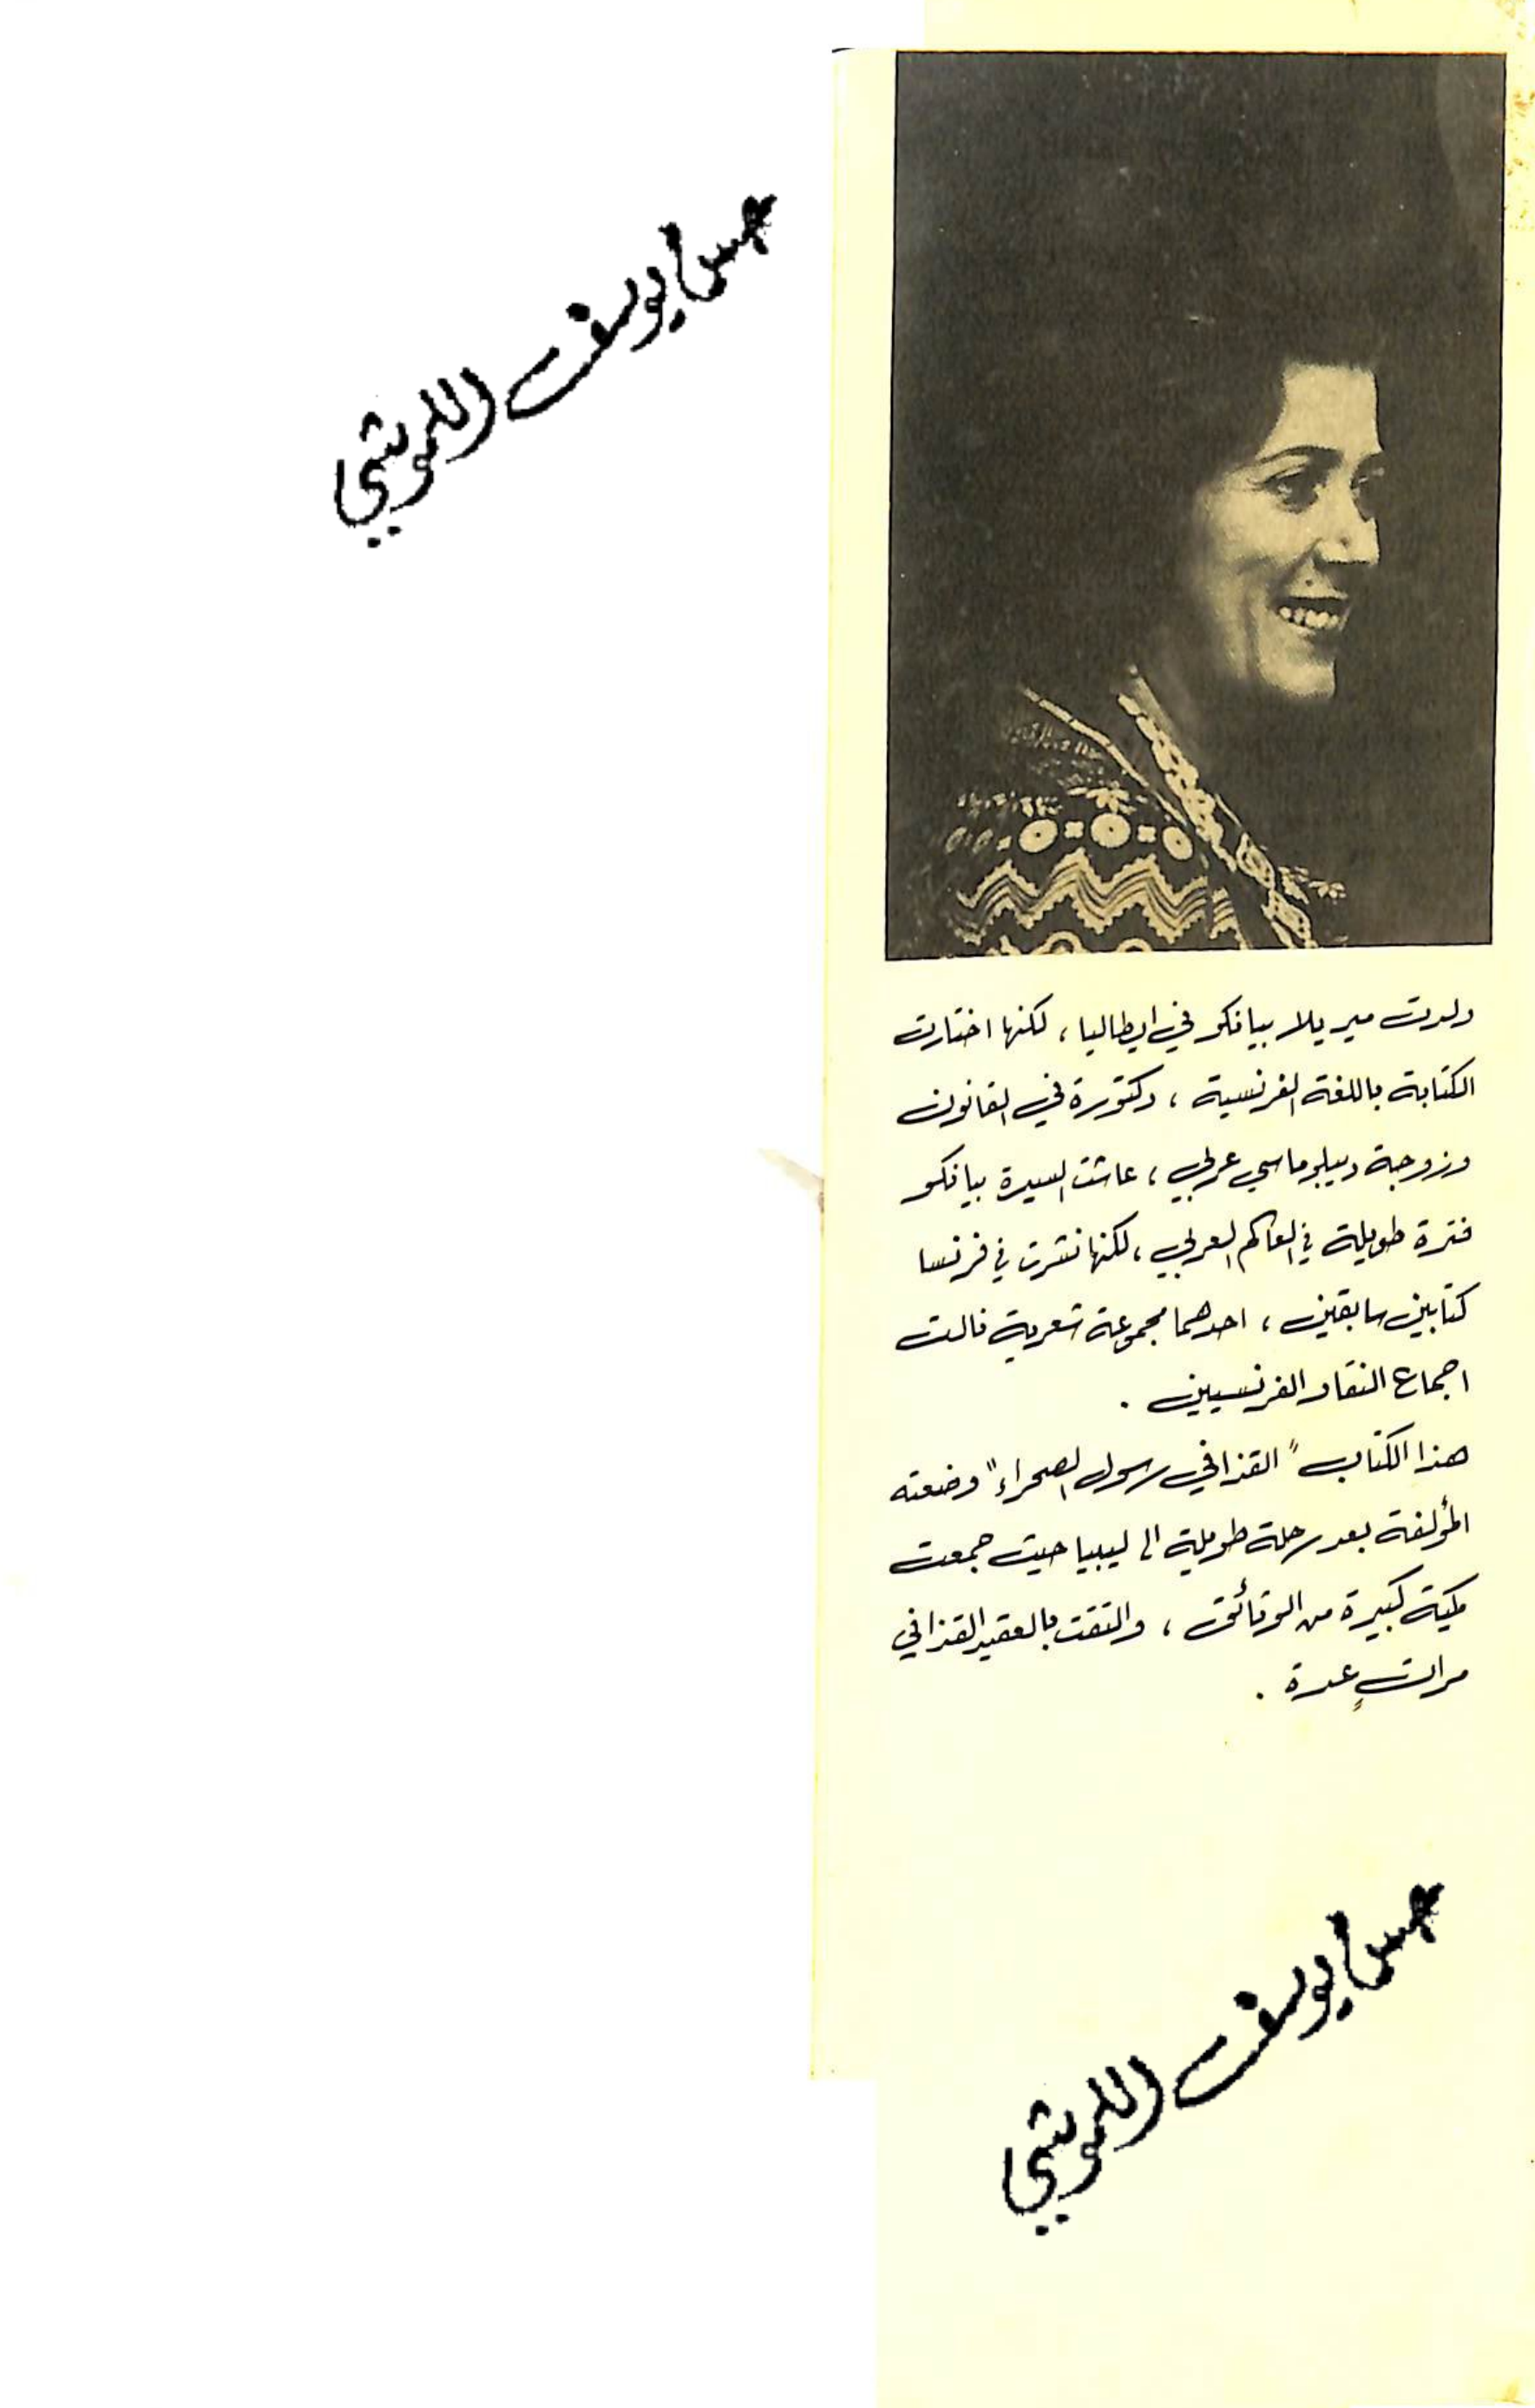 يوسف اللموشي
ولدت ميريلا بيانكو في ايطاليا، لكنها اختارت
الكتابة باللغة الفرنسية، دكتورة في القانون
وزوجة ديبلوماسي عربي، عاشت السيدة بيانكو
فترة طويلة في العالم العربي، لكنها نشرت في فرنسا
كتابين سابقين، احدهما مجموعة شعرية نالت
اجماع النقاد الفرنسيين .
هذا الكتاب "القذافي رسول الصحراء" وضعته
المؤلفة بعد رحلة طويلة الى ليبيا حيث جمعت
كمية كبيرة من الوثائق، والتقت بالعقيد القذافي
مراتٍ عدة .
يوسف اللموشي